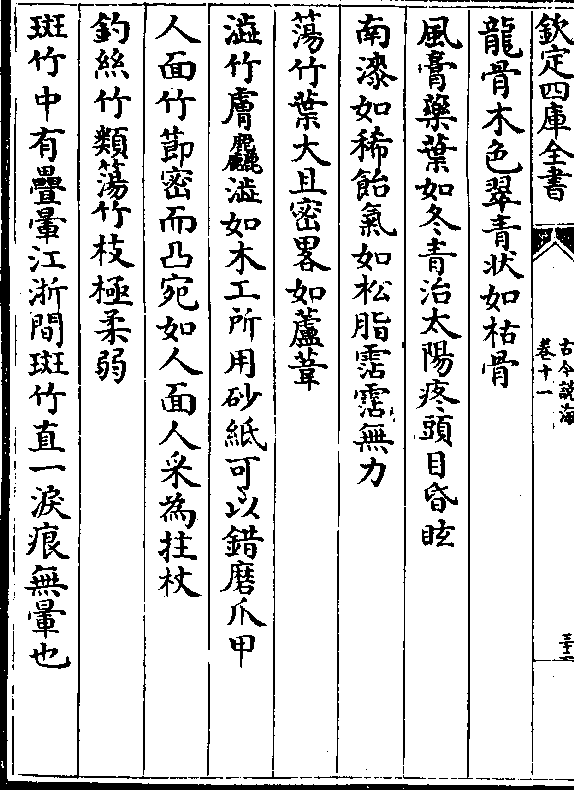 欽定四庫全書
古今説海
卷十一
三十二
龍骨木色翠青状如枯骨
風膏藥葉如冬青治太陽疼頭目昏眩
南漆如稀飴氣如松脂霑霑無力
蕩竹葉大且密畧如蘆葦
澁竹膚麤澁如木工所用砂紙可以錯磨爪甲
人面竹莭密而凸宛如人面人采為拄杖
釣絲竹類蕩竹枝極柔弱
斑竹中有疊暈江浙間斑竹直一淚痕無暈也